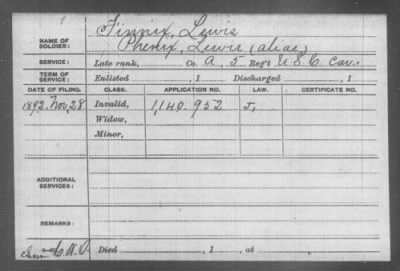 NAME OF SOLDIER: Finnix, Lewis
Phenix, Lewis (alias)
SERVICE: Late rank, Co. A, 5 Reg't U S C Cav.
TERM OF SERVICE: Enlisted , 1 Discharged , 1
DATE OF FILING. CLASS. APPLICATION NO. LAW. CERTIFICATE NO.
1892 Nov, 28 Invalid, 1,140.952 J,
Widow,
Minor,
ADDITIONAL SERVICES:
REMARKS:
Died , 1 , at